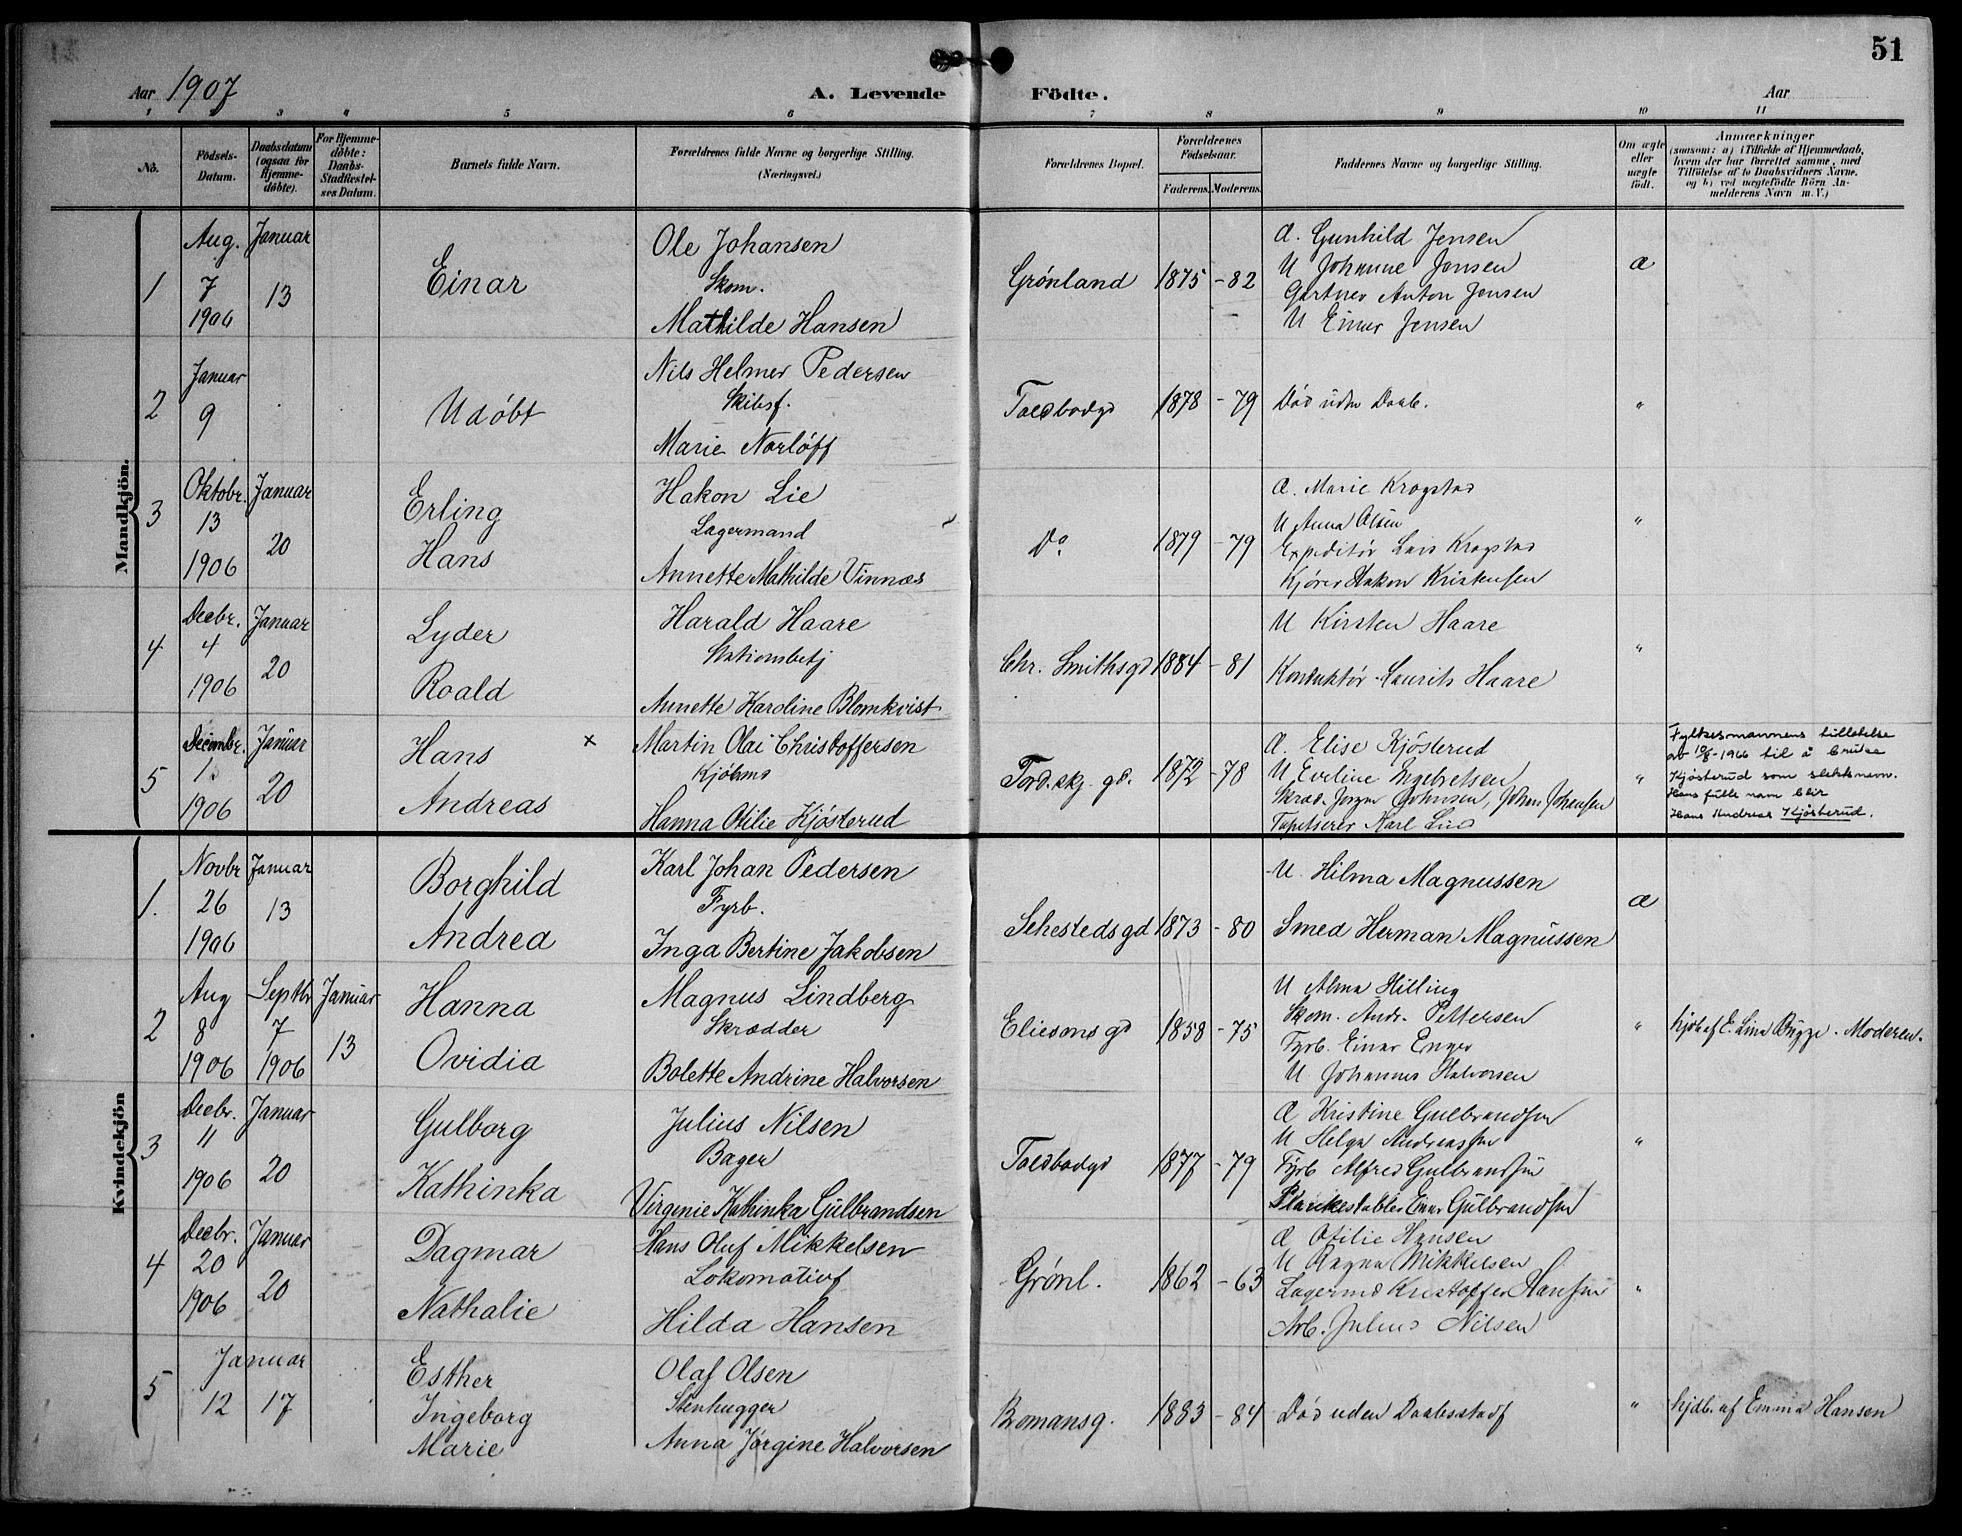 51
Aar 1907
A. Levende
Födte.
Aar
1 2 3 4 5 6 7 8 9 10 11
No.
Födsels-Datum.
Daabsdatum (ogsaa for Hjemmedöbte).
For Hjemmedöbte: Daabs-Stadfæstelses Datum.
Barnets fulde Navn.
Forældrenes fulde Navne og borgerlige Stilling.
(Næringsvei.)
Forældrenes Bopæl.
Forældrenes Födselsaar.
Faderens. Moderens.
Faddernes Navne og borgerlige Stilling.
Om ægte eller uægte født.
Anmærkninger
(saasom: a) i Tilfælde af Hjemmedaab,
hvem der har forrettet samme, med
Tilföielse af to Daabsvidners Navne.
og b) ved uægtefödte Börn Anmelderens Navn m.V.)
Mandkjön.
1
Aug. 7 1906
Januar 13
Einar
Ole Johansen
Skom.
Mathilde Hansen
Grönland
1875 - 82
Æ. Gunhild Jensen
U Johanne Jensen
Gartner Anton Jensen
U Einar Jensen
æ
2
Januar 9
Udøbt
Nils Helmer Pedersen
Skibsf.
Marie Norløff
Toldbodgd
1878 - 79
Død uden Daab.
"
3
Oktobr. 13 1906
Januar 20
Erling
Hans
Hakon Lie
Lagermand
Annette Mathilde Vinnæs
Do
1879 - 79
Æ. Marie Krogstad
U Anna Olsen
Expeditör Lars Krogstad
Kjører Hakon Kristensen
"
4
Decbr. 4 1906
Januar 20
Lyder
Roald
Harald Haare
Stationsbetj
Annette Karoline Blomkvist
Chr. Smithsgd
1884 - 81
U Kirsten Haare
Konduktør Laurits Haare
"
5
Decembr. 1. 1906
Januar 20
Hans
Andreas
x
Martin Olai Christoffersen
Kjøbmd
Hanna Otilie Kjøsterud
Tord.skj. gd.
1872 - 78
Æ. Elise Kjøsterud
U Eveline Ingebretsen
Skræd. Jørgen Johnsen, Johan Johansen
Tapetserer Karl Lind
"
Fylkesmannens tillatelse
av 10/8-1966 til å bruke
Kjøsterud som slektsnavn.
Hans fulle navn blir
Hans Andreas Kjøsterud.
Kvindekjön
1.
Novbr 26 1906
Januar 13
Borghild
Andrea
Karl Johan Pedersen
Fyrb.
Inga Bertine Jakobsen
Sehestedsgd
1873 - 80
U. Hilma Magnussen
Smed Herman Magnussen
æ
2
Aug 8 1906
Septbr 7 1906
Januar 13
Hanna
Ovidia
Magnus Lindberg
Skrædder
Bolette Andrine Halvorsen
Eliesonsgd
1858 - 75
U Alma Hilling
Skom. Andr. Pettersen
Fyrb. Einar Enger
U Johannes Halvorsen
"
hjdb af E. Lina Bugge. Moderen.
3
Decbr. 11 1906
Januar 20
Gulborg
Kathinka
Julius Nilsen
Bager
Virginie Kathinka Gulbrandsen
Toldbodgd
1877 - 79
Æ Kristine Gulbrandsen
U Helga Andreassen
Fyrb Alfred Gulbrandsen
Plankestabler Einar Gulbrandsen
"
4
Decbr. 20 1906
Januar 20
Dagmar
Nathalie
Hans Oluf Mikkelsen
Lokomotivf
Hilda Hansen
Grønl.
1862 - 63
Æ Otilie Hansen
U Ragna Mikkelsen
Lagermd Kristoffer Hansen
Arb. Julius Nilsen
"
5
Januar 12 17
Esther
Ingeborg
Marie
Olaf Olsen
Stenhugger
Anna Jørgine Halvorsen
Bomansg.
1883 - 84
Død uden Daabsstadf
"
hjdb. af Emma Hansen